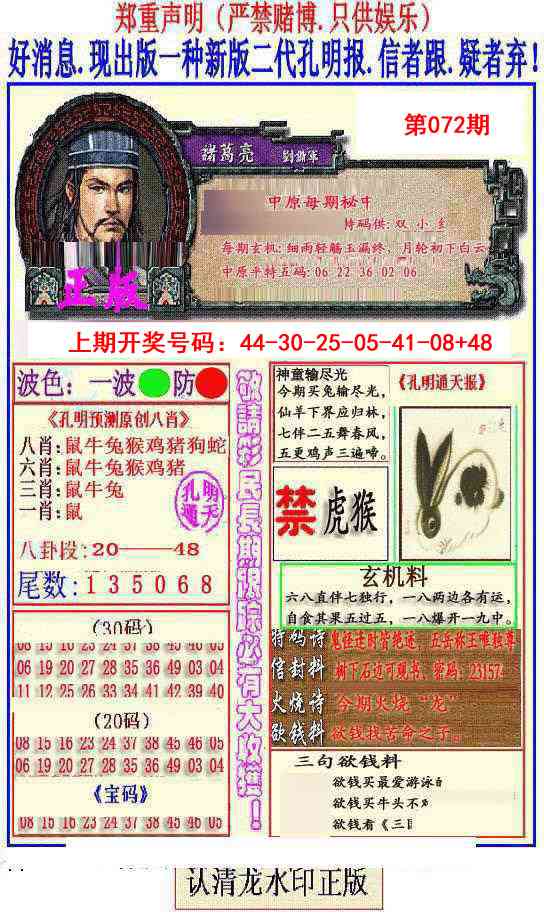 郑重声明（严禁赌博.只供娱乐）
好消息.现出版一种新版二代孔明报.信者跟.疑者弃!
第072期
諸葛亮
中原每期秘
码供: 双 小
每期玄机: 细雨轻觞玉漏终，月轮初下白云
中原平特五码: 06 22 36 02 06
正版
上期开奖号码：44-30-25-05-41-08+48
波色：一波 防
《孔明预测原创八肖》
八肖:鼠牛兔猴鸡猪狗蛇
六肖:鼠牛兔猴鸡猪
三肖:鼠牛兔
一肖:鼠
孔明通天
八卦段:20——48
尾数:135068
(30码)
08 15 16 23 24 37 38 45 46 05
06 19 20 27 28 35 36 49 03 04
11 12 25 26 33 34 41 42 39 40
(20码)
08 15 16 23 24 37 38 45 46 05
06 19 20 27 28 35 36 49 03 04
《宝码》
08 15 16 23 24 37 38 45 46 05
敬請彩民長期跟踪必有大收獲！
神童输尽光
今期买兔输尽光，
仙羊下界应归林，
七伴二五舞春风，
五更鸡声三遍啼。
禁 虎猴
《孔明通天报》
玄机料
六八直伴七独行，一八两边各有运，
自食其果五过五，一八爆开一九中。
特码诗 鬼怪连时皆绝迹，五岳林王唯独尊
信封料 树下石边可观书。密码：231574
火烧诗 今期火烧“龙”
欲钱料 欲钱找苦命之子。
三句欲钱料
欲钱买最爱游泳
欲钱买牛头不
欲钱看《三
认清龙水印正版